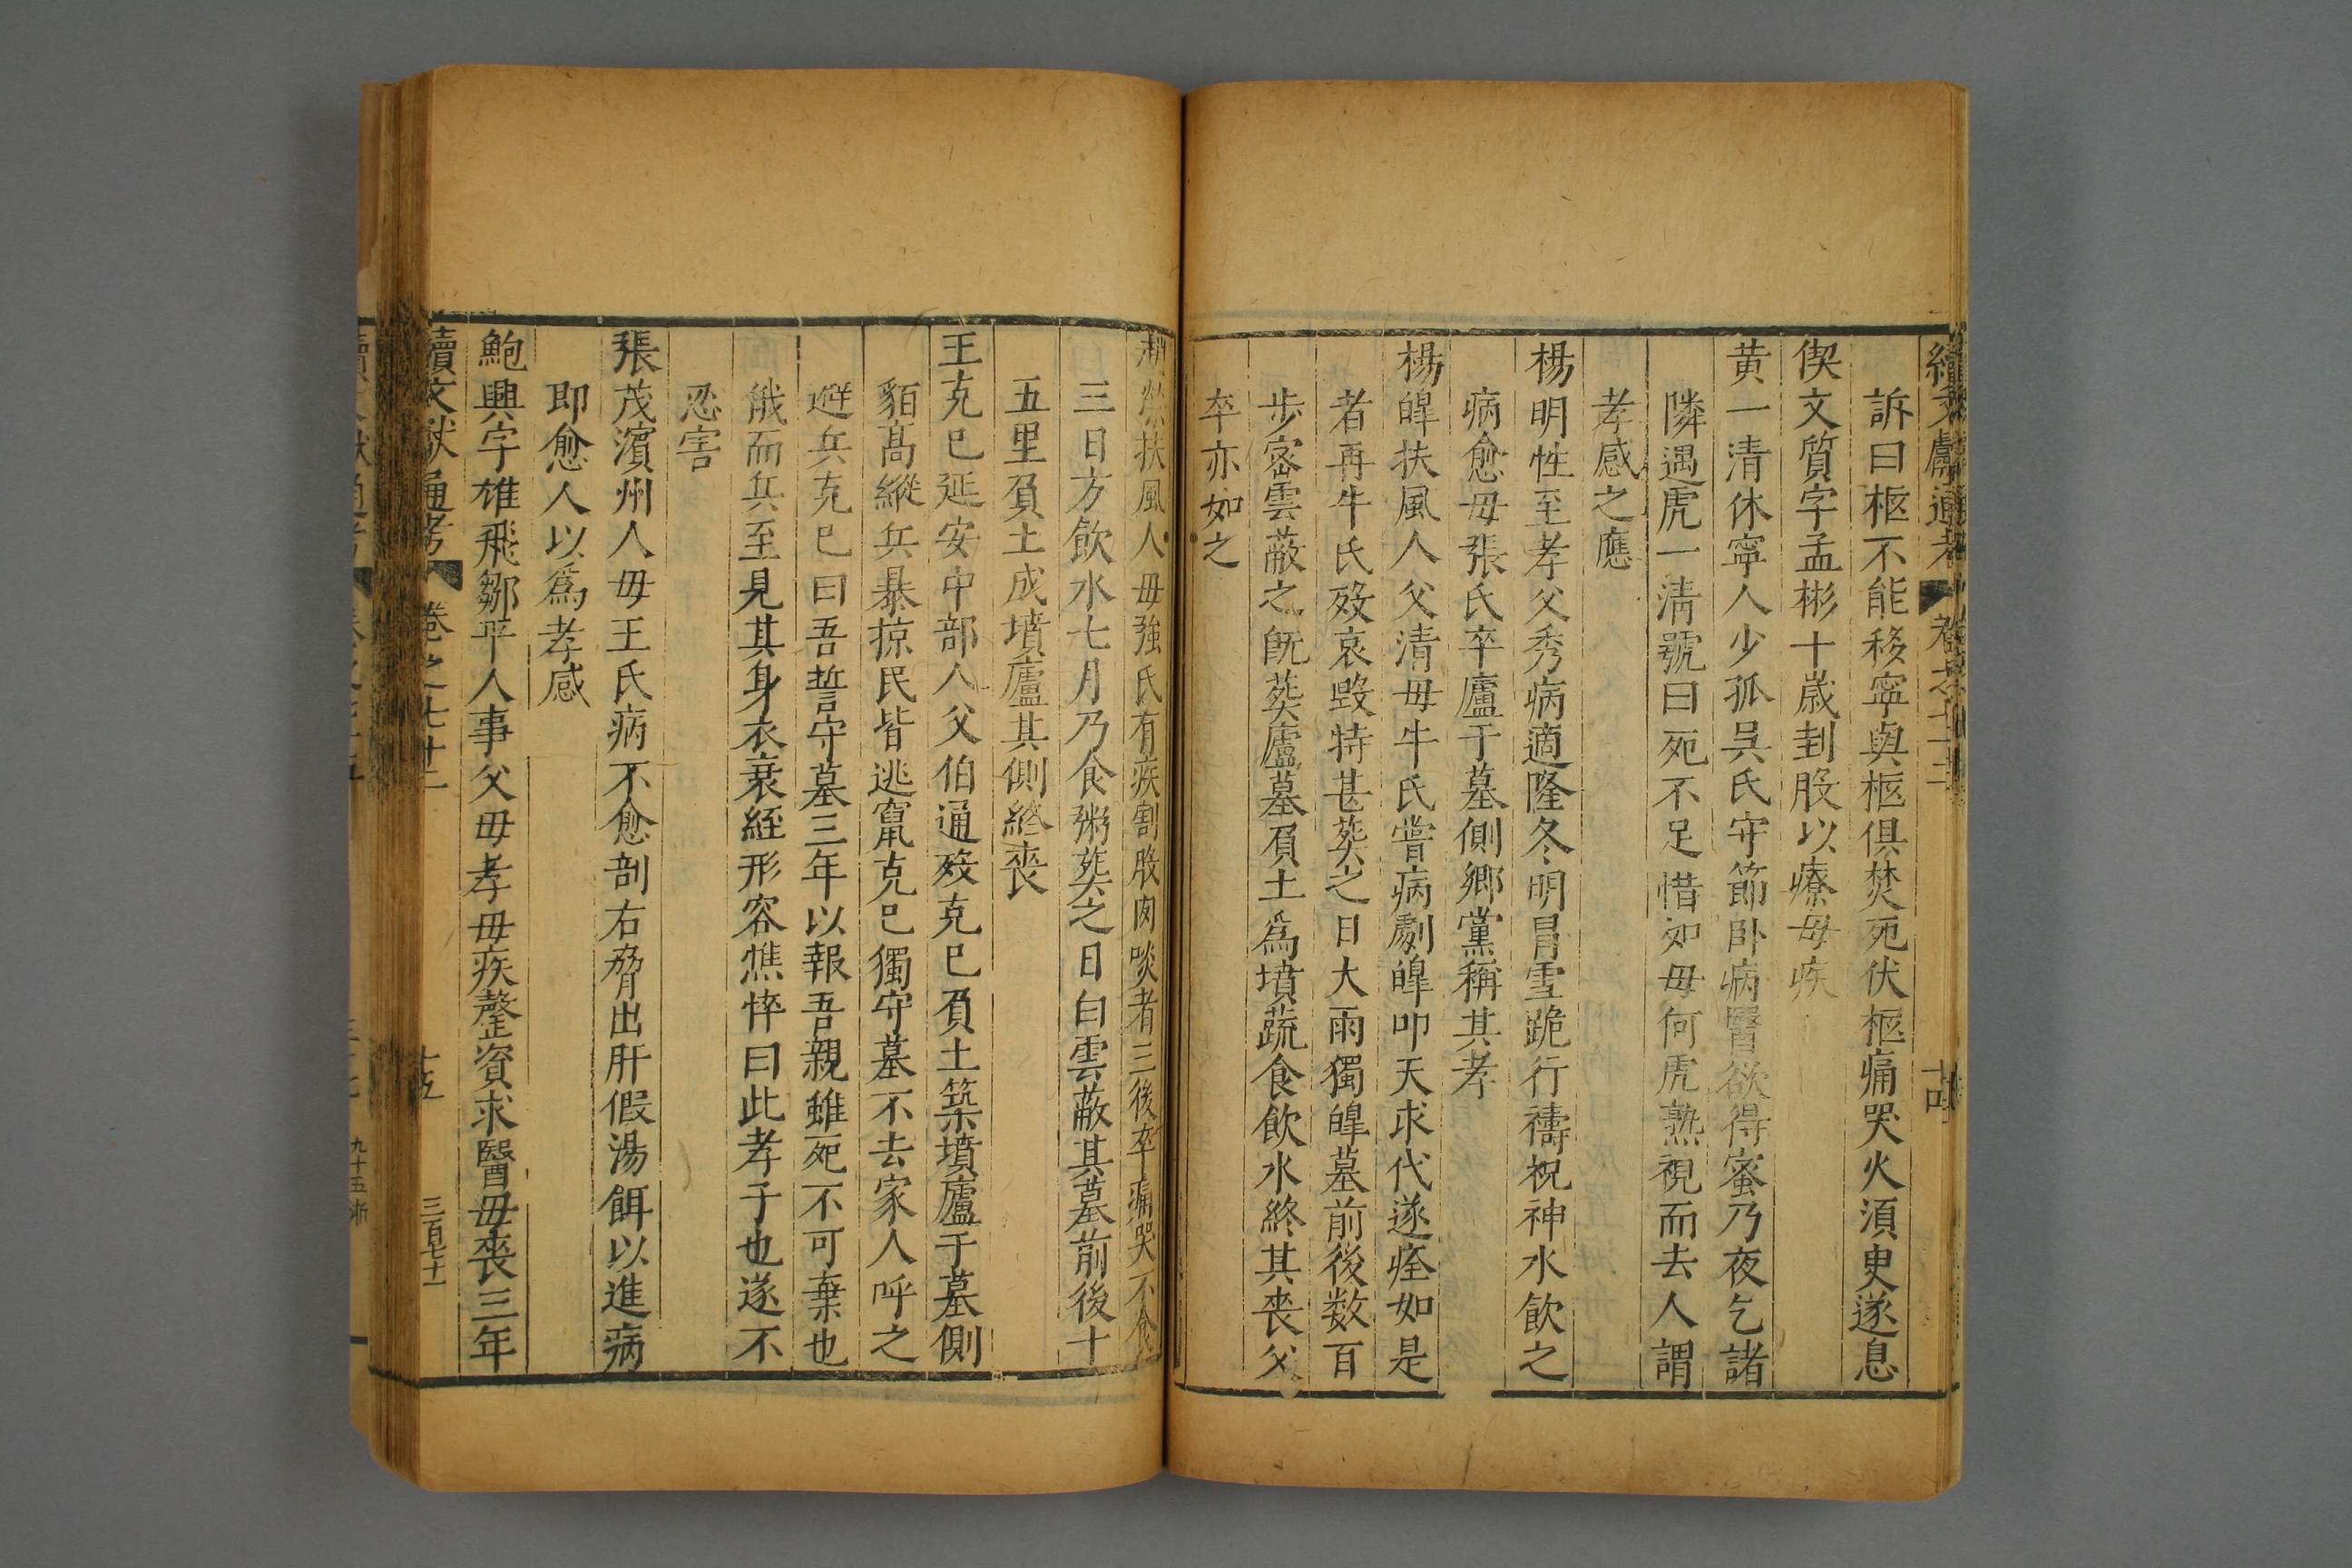 續文獻通考
卷之七十三
十四
訴曰柩不能移寧與柩俱焚死伏柩痛哭火須臾遂息
偰文質字孟彬十歲刲股以療母疾
黃一清休寧人少孤吳氏守節卧病醫欲得蜜乃夜乞諸
隣遇虎一清號曰死不足惜如母何虎熟視而去人謂
孝感之應
楊明性至孝父秀病適隆冬明冒雪跪行禱祝神水飲之
病愈母張氏卒廬于墓側鄉黨稱其孝
楊皡扶風人父清母牛氏嘗病劇皡叩天求代遂痊如是
者再牛氏歿哀毀特甚葬之日大雨獨皡墓前後数百
步密雲蔽之既葬廬墓負土爲墳蔬食飲水終其喪父
卒亦如之
趙榮扶風人母強氏有疾割股肉啖者三後卒痛哭不食
三日方飲水七月乃食粥葬之日白雲蔽其墓前後十
五里負土成墳廬其側終喪
王克已延安中部人父伯通歿克已負土築墳廬于墓側
貊高縱兵暴掠民皆逃竄克已獨守墓不去家人呼之
避兵克已曰吾誓守墓三年以報吾親雖死不可棄也
俄而兵至見其身衣衰絰形容憔悴曰此孝子也遂不
忍害
張茂濱州人母王氏病不愈剖右脅出肝假湯餌以進病
即愈人以爲孝感
鮑興字雄飛鄒平人事父母孝母疾罄資求醫母喪三年
續文獻通考
卷之七十三
十五
三百七十一
九十五